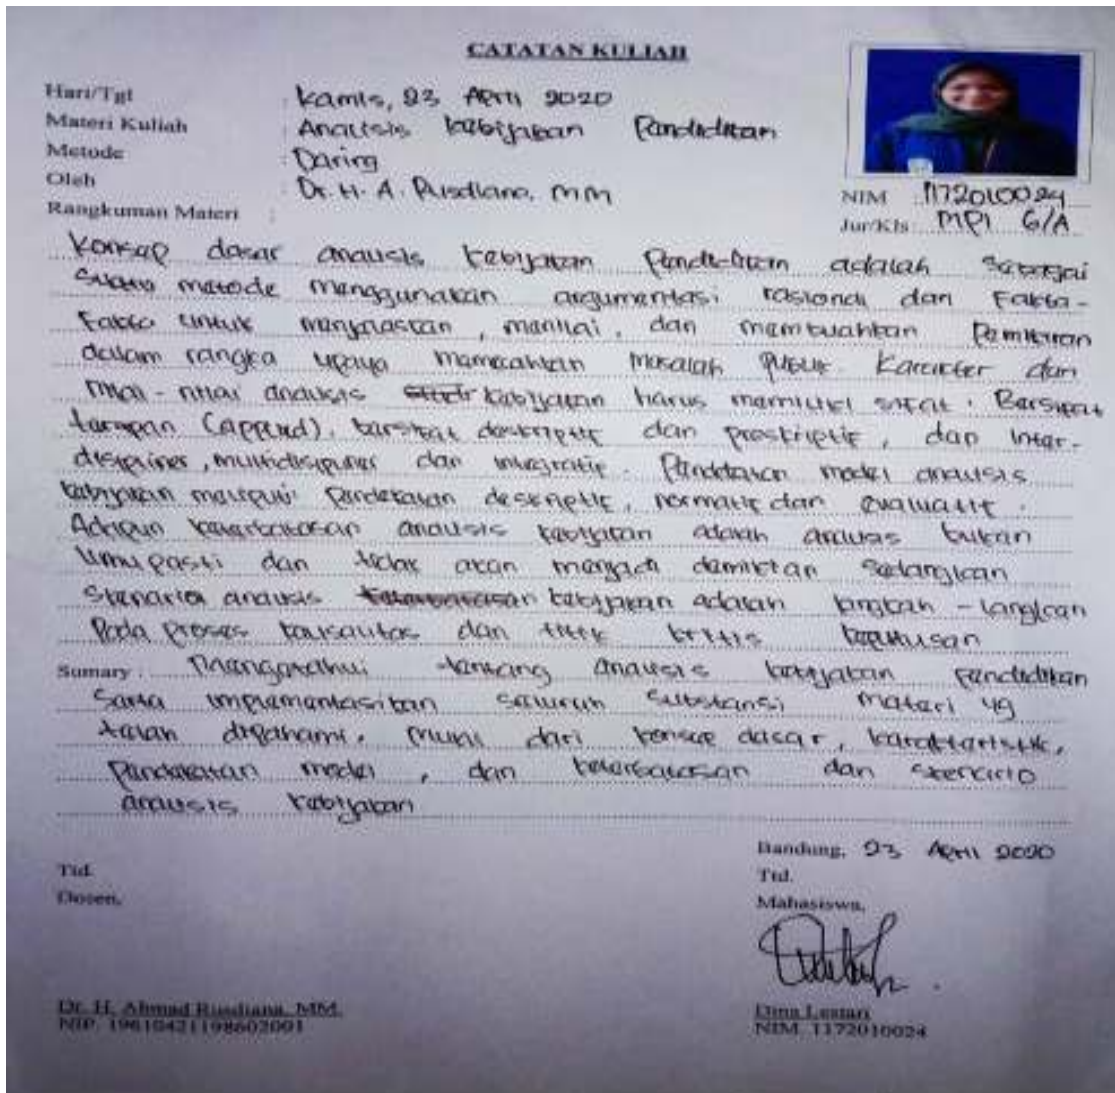 CATATAN KULIAH
Hari/Tgl : Kamis, 23 April 2020
Materi Kuliah : Analisis kebijakan Pendidikan
Metode : Daring
Oleh : Dr. H. A. Rusdiana, MM
NIM 1172010024
Rangkuman Materi :
Jur/Kls : MPI 6/A
Konsep dasar analisis kebijakan Pendidikan adalah sebagai
suatu metode menggunakan argumentasi rasional dan Fakta-
Fakta untuk menjelaskan, menilai, dan membuahkan Pemikiran
dalam rangka upaya memecahkan masalah publik. Karakter dan
nilai-nilai analisis kebijakan harus memiliki sifat. Bersifat
terapan (applied), bersifat deskriptif dan preskriptif, dan inter-
disipliner, multidisipliner dan integratif. Pendekatan model analisis
kebijakan meliputi Pendekatan deskriptif, normatif dan evaluatif.
Adapun keterbatasan analisis kebijakan adalah analisis bukan
ilmu pasti dan tidak akan menjadi demikian sedangkan
Skenario analisis kebijakan adalah langkah-langkah
Pada proses kausalitas dan titik kritis keputusan
Sumary : Mengetahui tentang analisis kebijakan pendidikan
Serta implementasikan seluruh substansi materi yg
telah dipahami, mulai dari konsep dasar, karakteristik,
Pendekatan model, dan keterbatasan dan skenario
analisis kebijakan
Bandung, 23 April 2020
Ttd.
Dosen,
Ttd.
Mahasiswa,
Dr. H. Ahmad Rusdiana, MM.
NIP. 19610421198602001
Dina Lestari
NIM. 1172010024